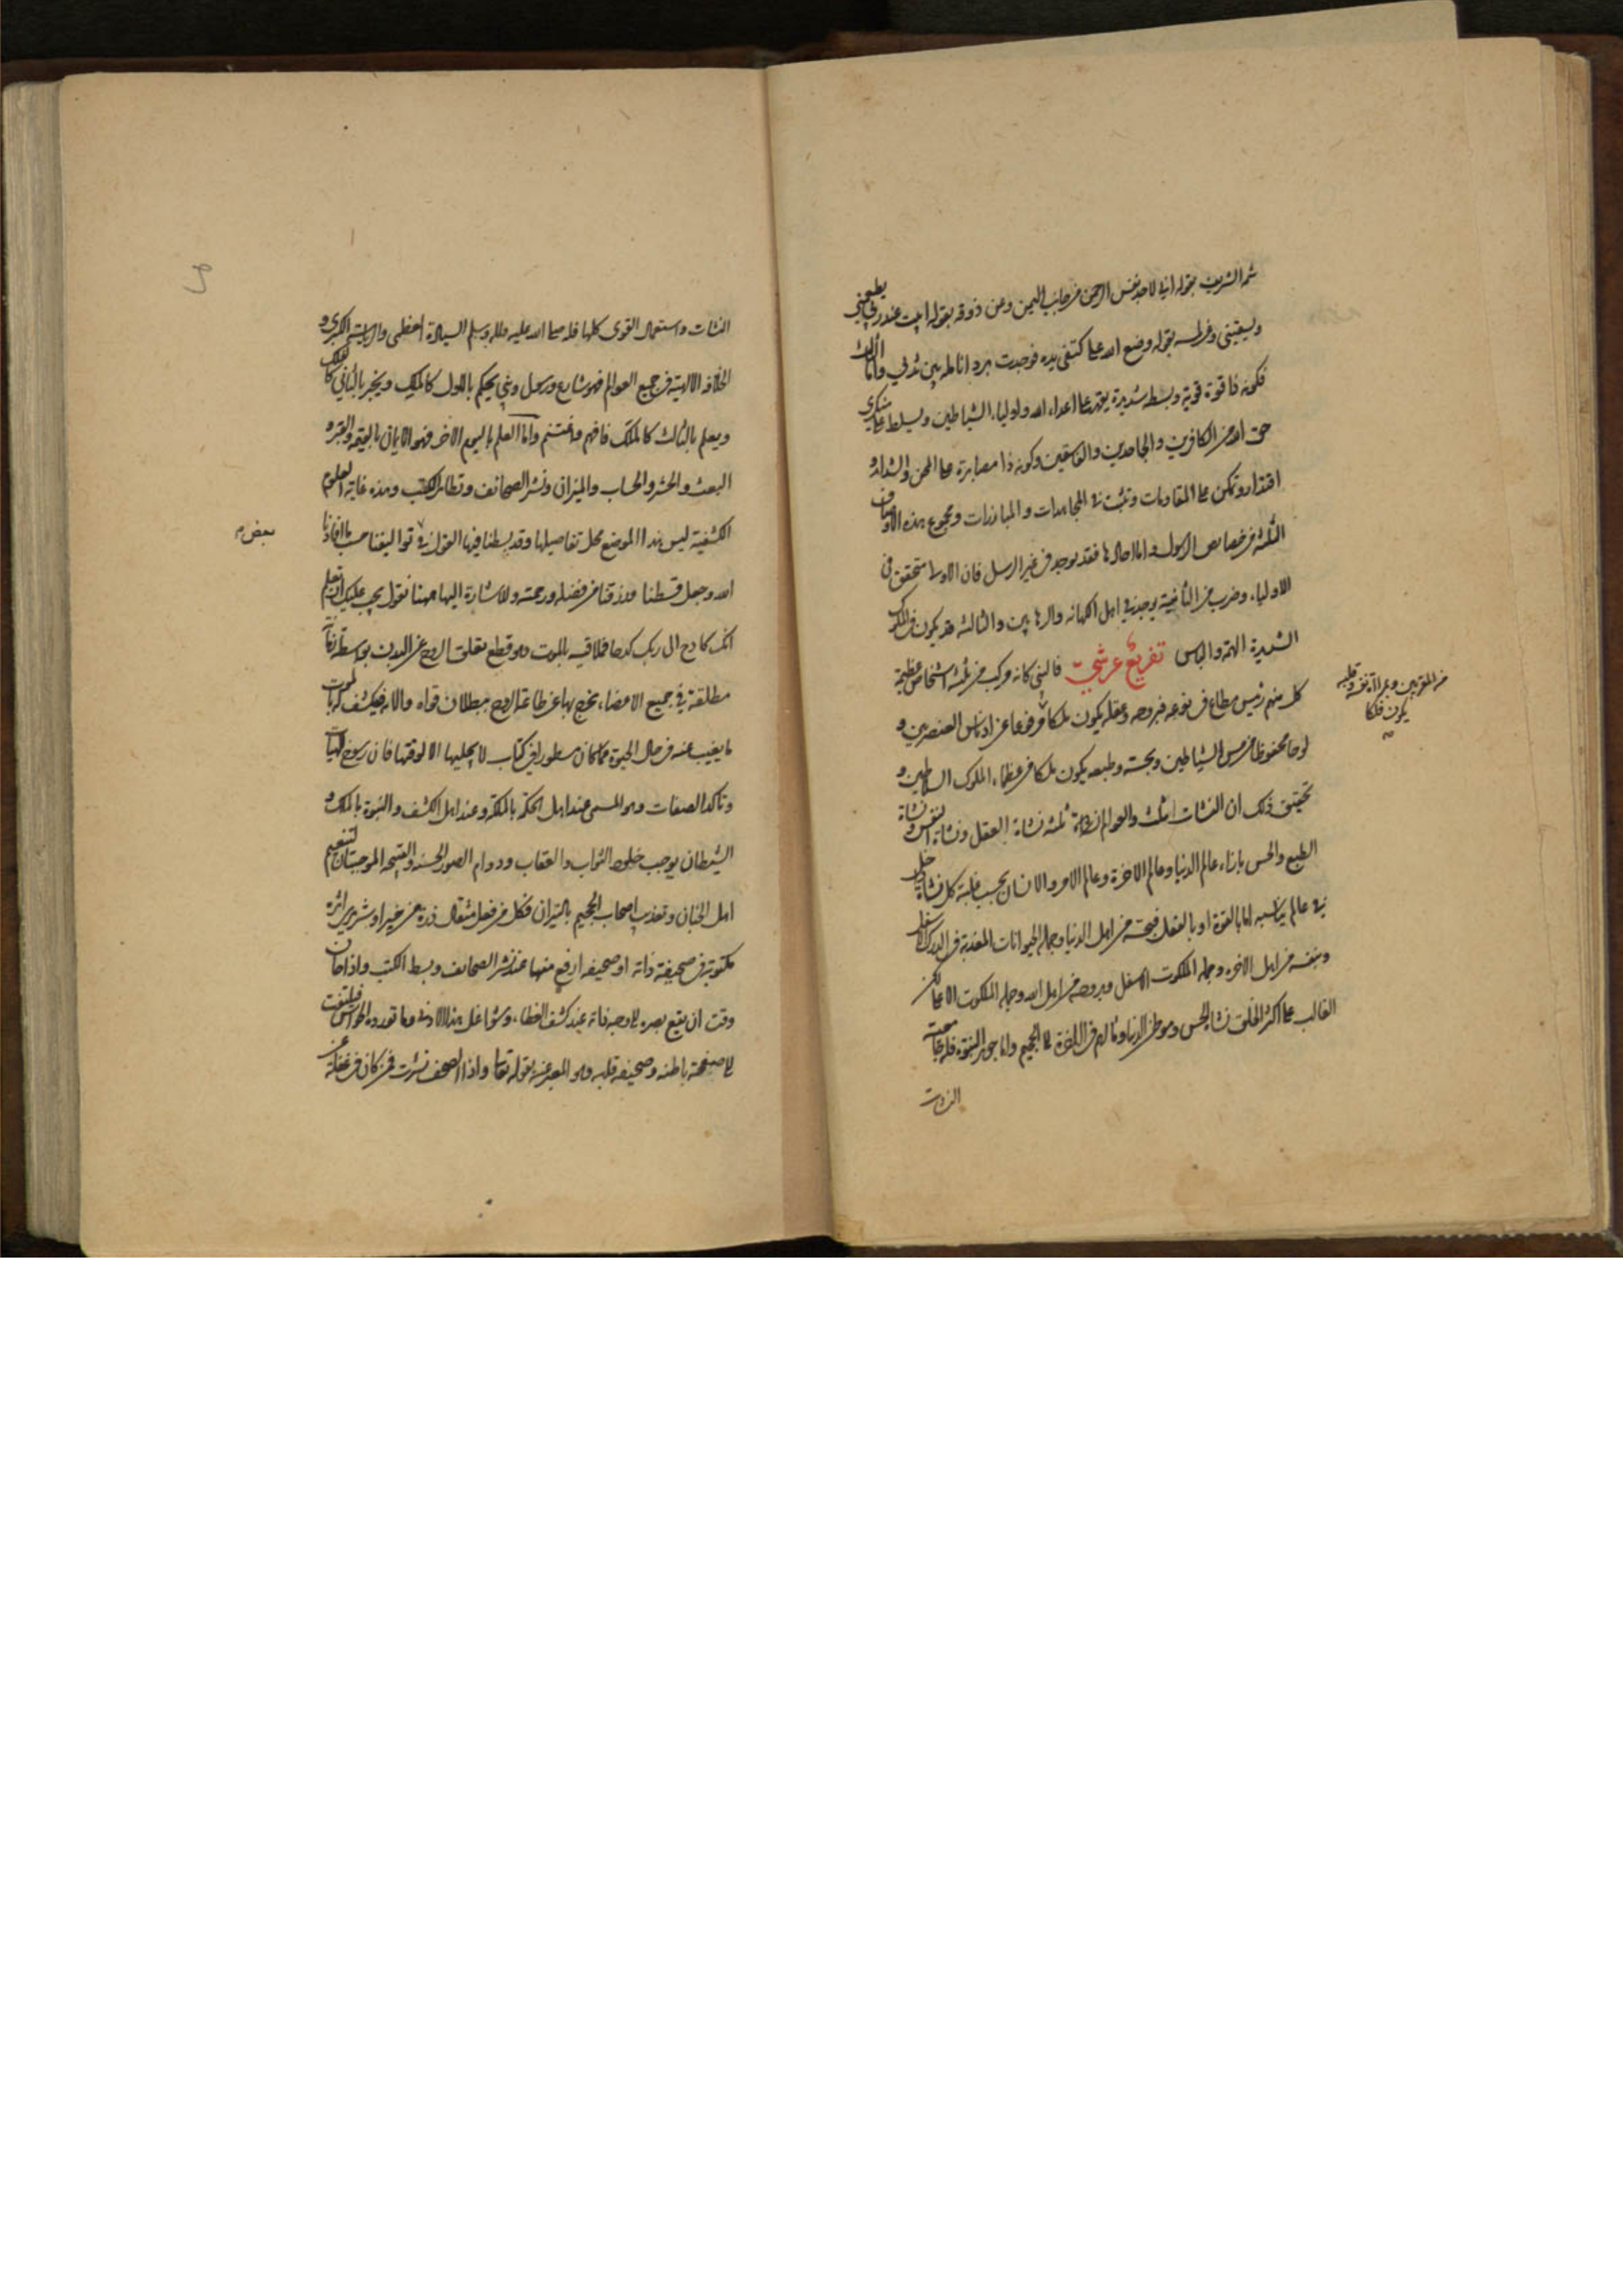 شمه الشريف بقوله اني لاجد نفس الرحمن من جانب اليمن وعن ذوقه بقوله ابيت عند ربي يطعمني
ويسقيني وعن لمسه بقوله وضع الله على كتفي يده فوجدت برد انامله بين ثديي واما الثالث
فكونه ذا قوة قوية وبسطة شديدة يقهر على اعداء الله واولياء الشياطين ويسلط على منكري
حق الله من الكافرين والجاحدين والفاسقين وكونه ذا مصابرة على المحن والشدائد و
اقتدار وتمكن على المقاومات وتثبت في المجاهدات والمبارزات ومجموع هذه الاوصاف
الثلثة من خصايص الرسول واما احادها فقد يوجد في غير الرسل فان الاولى متحقق في
الاولياء وضرب من الثانية يوجد في اهل الكهانة والرهابين والثالثة قد يكون في الملوك
الشديدة الهمة والباس تفريع عرشي فالنبي كانه مركب من ثلثة اشخاص عظيمة
كل منهم رئيس مطاع في نوعه فبروحه وعقله يكون ملكا مرفوعا عن ادناس العنصريين و
لوحا محفوظا من مس الشياطين وبحسه وطبعه يكون ملكا من عظماء الملوك السلاطين و
تحقيق ذلك ان النشات ثلث والعوالم ثلثة نشاة العقل ونشاة النفس ونشاة
الطبع والحس بازاء عالم الدنيا وعالم الاخرة وعالم الامر والانسان بحسب غلبة كل نشاة دخل
في عالم يناسبه اما بالقوة او بالفعل فبحسه من اهل الدنيا وجملة الحيوانات المعذبة في الدرك الاسفل
وبنفسه من اهل الاخرة وجملة الملكوت الاسفل وبروحه من اهل الله وجملة الملكوت الاعلى لكن
الغالب على اكثر الخلق نشاة الحس وموطن الدنيا ومالهم في الاخرة الى الجحيم واما جوهر النبوة فله جامعية
النشات
من المقربين وبمراة نفسه وقلبه
يكون فلكا
النشات واستعمال القوى كلها فله صلى الله عليه واله وسلم السيادة العظمى والرياسة الكبرى و
الخلافة الالهية في جميع العوالم فهو شارع ورسول ونبي يحكم بالاول كالملك ويخبر بالثاني كالفلك
ويعلم بالثالث كالملك فافهم واغتنم واما العلم باليوم الاخر فهو الايمان بالقيمة والقبر و
البعث والحشر والحساب والميزان ونشر الصحائف وتطاير الكتب وهذه غاية العلوم
الكشفية ليس هذا الموضع محل تفاصيلها وقد بسطنا فيها القول في تواليفنا حسب ما افادنا
الله وجعل قسطنا ورزقنا من فضله ورحمته وللاشارة اليها ههنا نقول يجب عليك ان تعلم
انك كادح الى ربك كدحا فملاقيه بالموت وهو قطع تعلق الروح عن البدن بواسطة افة
مطلقة في جميع الاعضاء يخرج بها عن طاعة الروح ببطلان قواه والاته فيكشف له بالموت
ما يغيب عنه في حال الحيوة مما كان مسطورا في كتاب لا يجليها الا لوقتها فان رسوخ الهيات
وتاكد الصفات وهو المسمى عند اهل الحكمة بالملكة وعند اهل الكشف والنبوة بالملك و
الشيطان يوجب خلود الثواب والعقاب ودوام الصور الحسنة والقبيحة الموجبتان لتنعيم
اهل الجنان وتعذيب اصحاب الجحيم بالنيران فكل من فعل مثقال ذرة من خير او شر يرى اثره
مكتوبة في صحيفة ذاته او صحيفة ارفع منها عند نشر الصحائف وبسط الكتب واذا حان
وقت ان يقع بصره الى وجه ذاته عند كشف الغطاء وشواغل هذا الادنى وما تورده الحواس فيلتفت
الى صفحة باطنه وصحيفة قلبه وهو المعبر عنه بقوله تعالى واذا الصحف نشرت فمن كان في غفلة عن
بعض م